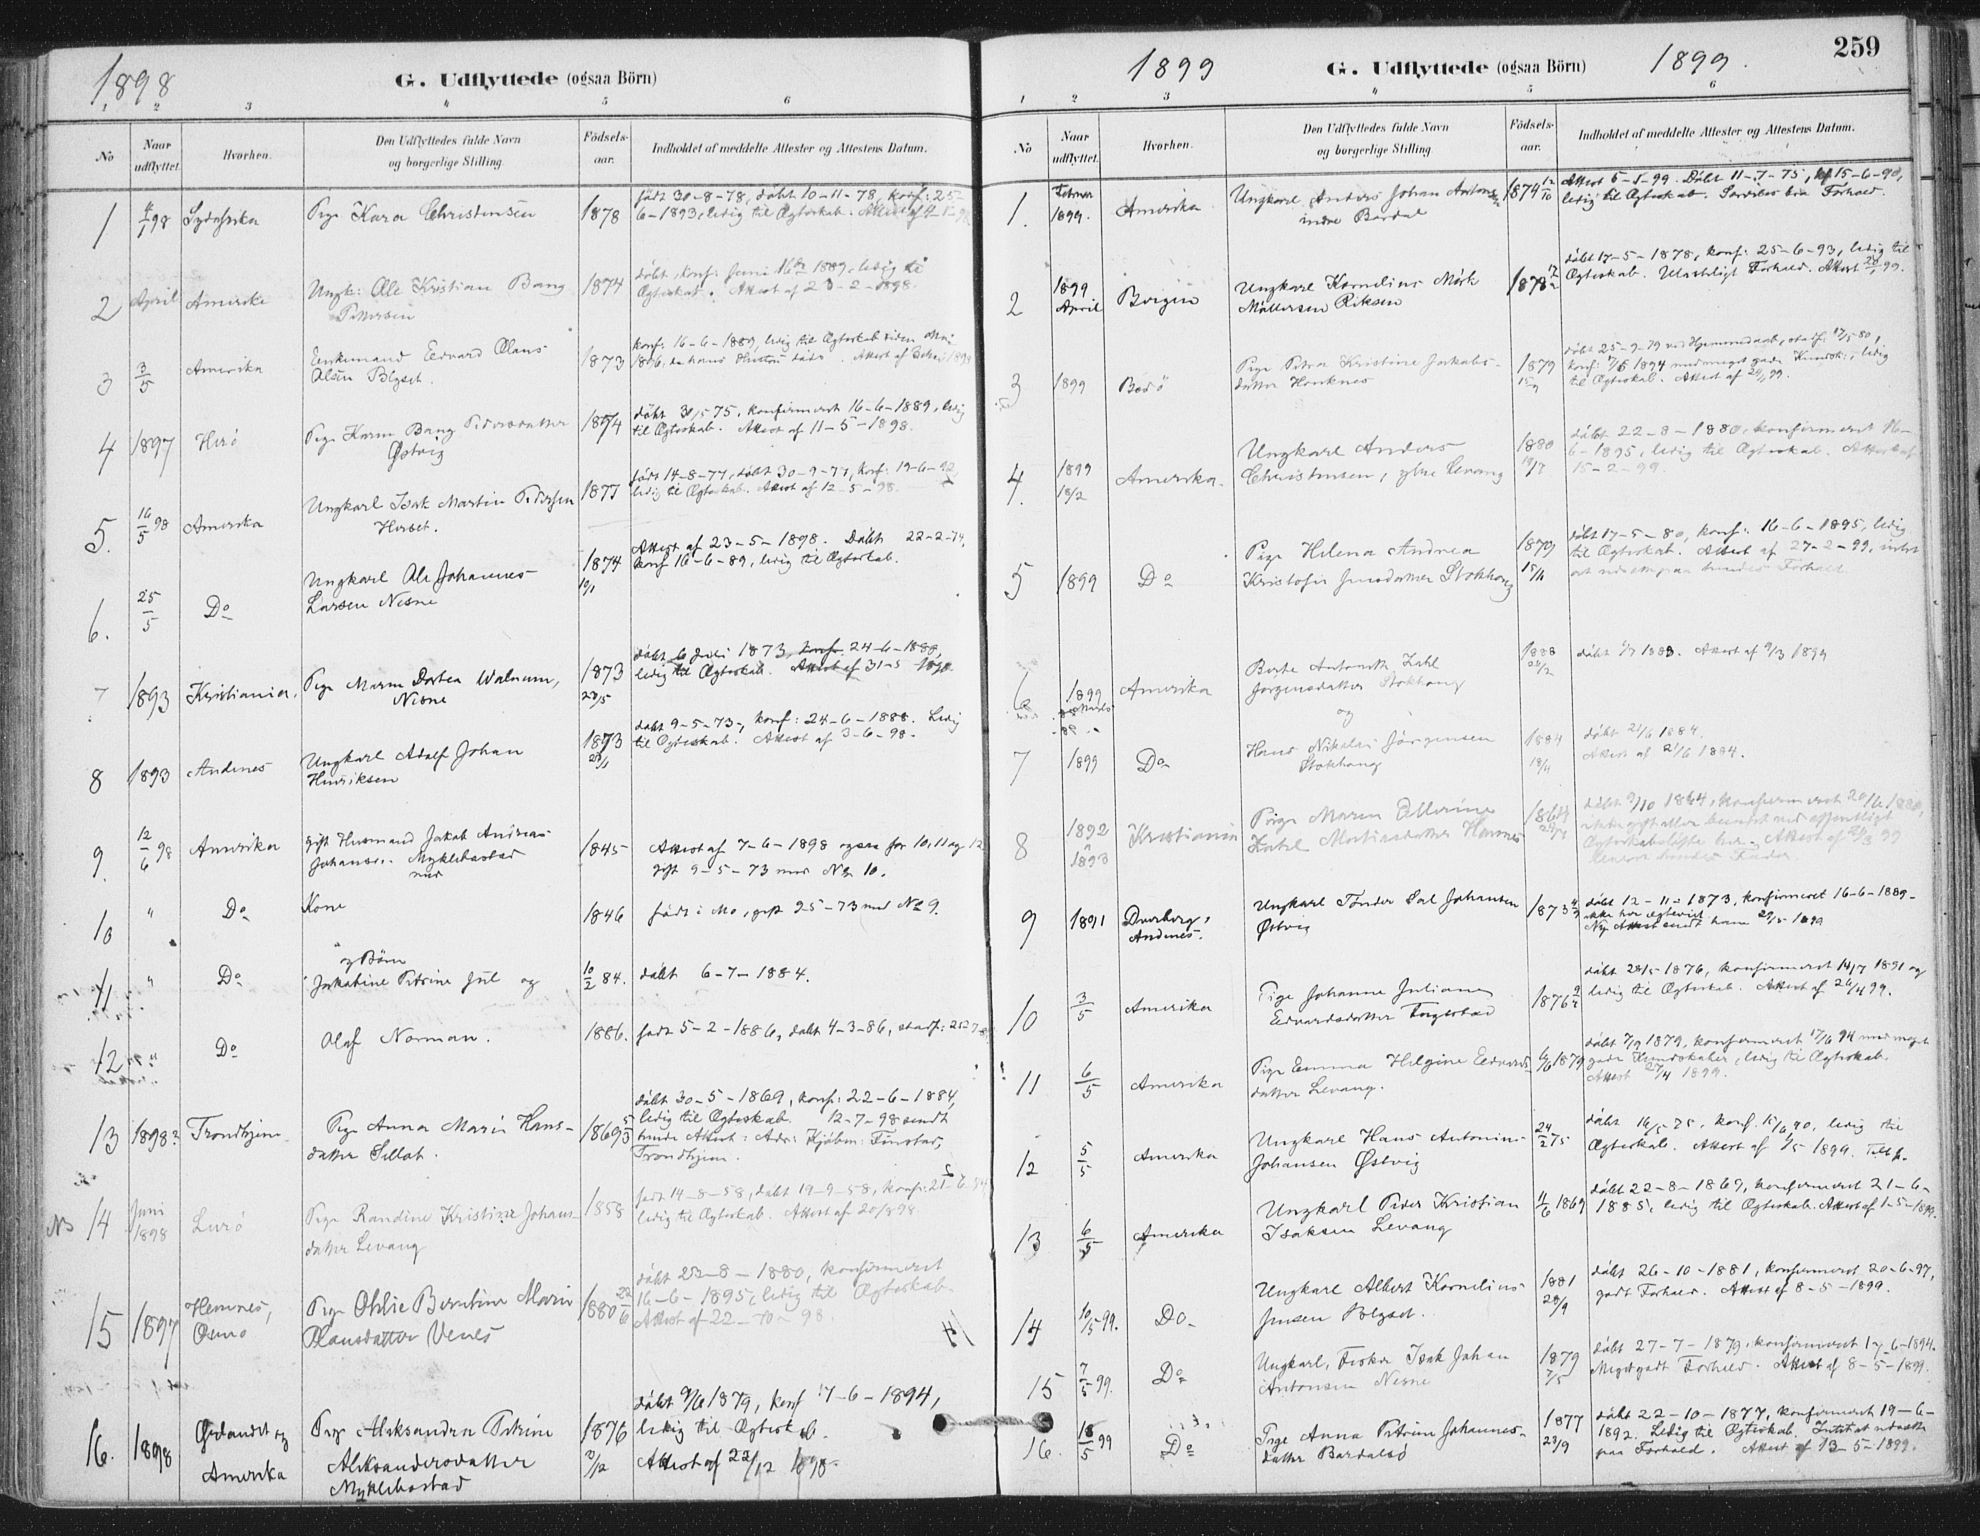 1898
G. Udflyttede (ogsaa Börn)
1 2 3 4 5 6
No
Naar udflyttet.
Hvorhen.
Den Udflyttedes fulde Navn og borgerlige Stilling
Födsels-aar.
Indholdet af meddelte Attester og Attestens Datum.
1 4/1 98 Sydafrika Pige Kara Christensen 1878 født 30-8-78, døbt 10-11-78, konf: 25-
6-1893, ledig til Ægteskab.
2 April Amerika Ungk: Ole Kristian Bang 1874 døbt, konf: Juni 16de 1889, ledig til
Pettersen Ægteskab. Attest af 23-2-1898.
3 3/5 Amerika Enkemand Edvard Olaus 1873 konf: 16-6-1889, ledig til Ægteskab siden
Olsen Blgset. 1896, da hans Hustru døde. Attest af
4 1897 Herö Pige Karen Bang Pedersdatter 1874 døbt 30/5 75, konfirmeret 16-6-1889, ledig
Østvig til Ægteskab. Attest af 11-5-1898.
5. 16/5 98 Amerika Ungkarl Isak Martin Pedersen 1877 født 14-8-77, døbt 30-9-77, konf: 19-6-92
ledig til Ægteskab. Attest af 12-5-98.
6. 25/5 Do Ungkarl Ole Johannes 1874 Attest af 23-5-1898. Døbt 22-2-74,
Larsen Nesne 19/1 konf 16-6-89, ledig til Ægteskab.
7 1893 Kristiania. Pige Maren Dortea Walnum, 1873 døbt 6 Juli 1873, konf. 24-6-1888,
Nesne 23/5 ledig til Ægteskab. Attest af 31-5 1898
8 1893 Andenes Ungkarl Adolf Johan 1873 døbt 9-5-73, konf: 24-6-1888. Ledig
Henriksen til Ægteskab. Attest af 3-6-98.
9. 12/6 98 Amerika gift Husmand Jakob Andreas 1845 Attest af 7-6-1898 ogsaa for 10, 11 og 12
Johansen Myklebostad gift 9-5-73 med No 10.
10 " Do Kone 1846 født i Mo, gift 95-73 med No 9.
og Børn
11 " Do Jakobine Petrine Jul og 10/2 84. døbt 6-7-1884.
12 " Do Olaf Norman. 1886. født 5-2-1886, døbt 4-3-86,
13 1898? Trondhjem Pige Anna Marie Hans- 1869 5/3 døbt 30-5-1869, konf: 22-6-1884,
datter ledig til Ægteskab. 12-7-98 sendt
hende Attest: Adr: Kjøbm: Finstad,
Trondhjem.
14 Juni 1898 Lurö Pige Randine Kristine Johans- 1858 født 14-8-58, døbt 19-9-58, konf:
datter Levang ledig til Ægteskab. Attest af 20/8 98
15 1897 Hemnes, Pige Othlie Berntine Marie 1880 22/6 døbt 22-8-1880, konfirmeret
Hansdatter Venes 16-6-1895, ledig til Ægteskab
Attest af 22-10-98.
16. 1898 Ørlandet og Pige Aleksandra Petrine 1876 døbt 9/6 1879, konf 17-6-1894,
Amerika Aleksandersdatter 2/12 ledig til Ægtesk.
Myklebostad Attest af 22/12 1898.
1899
G. Udflyttede (ogsaa Börn)
1899.
259
1 2 3 4 5 6
No
Naar udflyttet.
Hvorhen.
Den Udflyttedes fulde Navn og borgerlige Stilling
Födsels-aar.
Indholdet af meddelte Attester og Attestens Datum.
1. Februar 1899. Amerika Ungkarl Anders Johan Antonsen 1874 12/10 Attest 5-1-99. Døbt 11-7-75, kf 15-6-90,
indre Bardal ledig til Ægteskab. Forhold.
2 1899 April Bergen Ungkarl Kornelius Mørk 1878 døbt 17-5-1878, konf: 25-6-93, ledig til
Möllersen Riksen Ægteskab. Ulasteligt Forhold. Attest 99.
3 1899 Bodö Pige Petra Kristine Jakobs- 1879 døbt 25-9-79 ved Hjemmedaab, stadf: 17/5 80,
datter Handnes konf: 17/6 1894 med meget gode Kundsk:, ledig
til Ægteskab. Attest af 99.
4. 1899 18/2 Amerika Ungkarl Anders 1880 døbt 22-8-1880, konfirmeret 16-
Christensen, ytre Levang 6-1895, ledig til Ægteskab. Attest af
15-2-99.
5 1899 Do Pige Helena Andrea 1879 døbt 17-5-80, konf: 16-6-1895, ledig
til Ægteskab. Attest af 27-2-99, intet
at udsætte paa hendes Forhold.
6 1899 Amerika Berte Antonette Zahl 1888 døbt 1888. Attest af 9/3 1899
Jørgensdatter Stokhang
og
7 1899 Do Hans Nikolai Jörgensen 1884 døbt 21/6 1884.
Stokhang 18/4 Attest af 21/6 1884.
8 1892 a 1893 Kristiania Pige Maren Ellerine 1864 døbt 9/10 1864, konfirmeret 20/6 1880,
Martinsdatter Hamnes
9 1891 Dverberg, Ungkarl Tönder Sal Johansen 1873 døbt 12-11-1873, konfirmeret 16-6-1889-
Andenes. Østvig Ny Attest sendt ham 1899
10 3/5 Amerika Pige Johanne Juliane 1876 døbt 28/5 1876, konfirmeret 1891 og
Edvardsdatter ledig til Ægteskab. Attest af 26/4 99.
11 6/5 Amerika Pige Emma Helgine Edvards- 1879 døbt 7/9 1879, konfirmeret 17/6 94 med meget
datter Levang. gode Kundskaber, ledig til Ægteskab.
Attest 27/4 1899.
12 5/5 Amerika Ungkarl Hans Antonius 24/2 75 døbt 16/5 75, konf. 15/6 90, ledig til
Johansen Østvig Ægteskab. Attest af 1/5 1899.
13 6/5 Amerika Ungkarl Peder Kristian 11/6 1869 døbt 22-8-1869, konfirmeret 21-6-
Isaksen Levang 1885, ledig til Ægteskab. Attest af 1-5-1899.
14 10/5 99. Do Ungkarl Albert Kornelius 1881 døbt 26-10-1881, konfirmeret 20-6-97,
Jensen 28/9 godt Forhold. Attest af 8-5-1899.
15 7/5 99. Do Ungkarl, Fisker Isak Johan 1879 døbt 27-7-1879, konfirmeret 17-6-1894.
Antonsen Nesne 7/5 Meget godt Forhold. Attest af 8-5-1899.
16. 18/5 99 Do Pige Anna Petrine Johannes- 1877 døbt 22-10-1877, konfirmeret 19-6-
datter Bardalsö 23/9 1892. Ledig til Ægteskab. Intet at udsætte
paa Forhold. Attest af 13-5-1899.